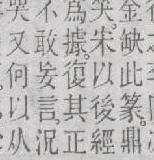 金缺此篆。鼎
笑。宋以後經
為據。復其正
不敢妄言況
哭又何以从